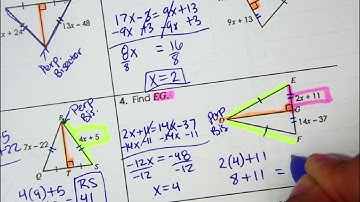 x + 24
13x - 48
Perp.
Bisector
17x - 3 = 9x + 13
-9x +3 -9x +3
8x = 16
8 8
x = 2
9x + 13
4. Find EG.
2x + 11 = 14x - 37
-14x - 11 -14x - 11
-12x = -48
-12 -12
x = 4
Perp
Bis
E
2x + 11
G
14x - 37
F
2(4) + 11
8 + 11 =
Perp
Bis
R
7x - 22
4x + 5
Q
T
S
4(9) + 5
RS
41